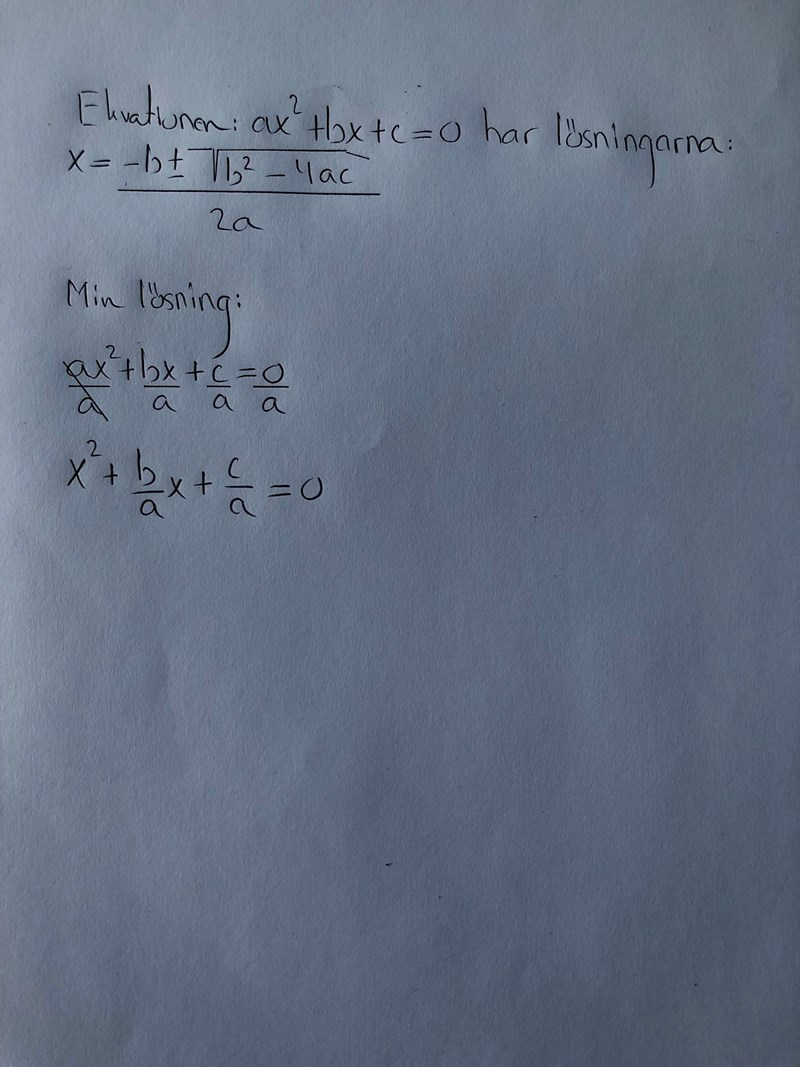 Ekvationen: ax² + bx + c = 0 har lösningarna:
x = (-b ± √(b² - 4ac)) / 2a
Min lösning:
ax²/a + bx/a + c/a = 0/a
x² + b/a x + c/a = 0